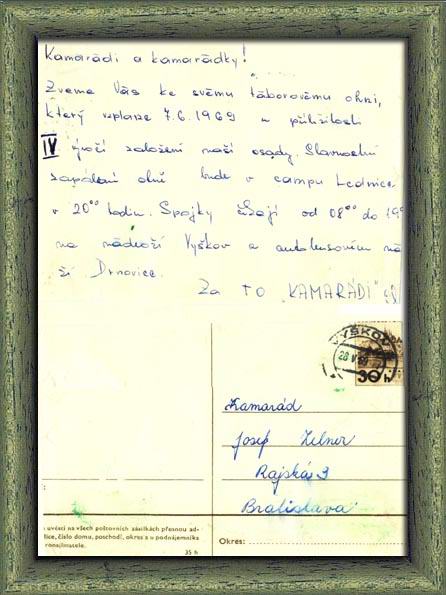 Kamarádi a kamarádky!
Zveme Vás ke svému táborovému ohni,
který vzplane 7.6.1969 u příležitosti
IV výročí založení naší osady. Slavnostní
zapálení ohně bude v campu Lednice
v 20⁰⁰ hodin. Spojky čekají od 08⁰⁰ do 19⁰⁰
na nádraží Vyškov a autobusovém ná
ží Drnovice.
Za TO "KAMARÁDI"
VYŠKOV
28 V 69
30 h
Kamarád
Josef Zelner
Rajská 3
Bratislava
uvésti na všech poštovních zásilkách přesnou ad-
lice, číslo domu, poschodí, okres a u podnájemníka
ronajímatele.
35 h
Okres: